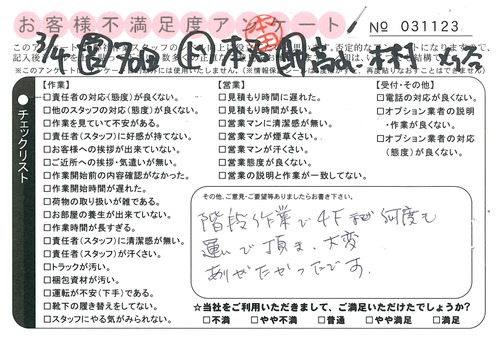 お客様不満足度アンケート
本田
No 031123
【作業】
□責任者の対応(態度)が良くない。
□他のスタッフの対応(態度)が良くない。
□作業を見ていて不安がある。
□責任者(スタッフ)に好感が持てない。
□お客様への挨拶が出来ていない。
□ご近所への挨拶・気遣いが無い。
□作業開始前の内容確認がなかった。
□作業開始時間が遅れた。
□荷物の取り扱いが雑である。
□お部屋の養生が出来ていない。
□作業時間が長すぎる。
□責任者(スタッフ)に清潔感が無い。
□責任者(スタッフ)が汗くさい。
□トラックが汚い。
□梱包資材が汚い。
□運転が不安(下手)である。
□靴下の履き替えをしてない。
□スタッフにやる気がみられない。
チェックリスト
【営業】
□見積もり時間に遅れた。
□見積もり時間が長い。
□営業マンに清潔感が無い。
□営業マンが煙草くさい。
□営業マンが汗くさい。
□営業態度が良くない。
□営業の説明と作業が一致してない。
【受付・その他】
□電話の対応が良くない。
□オプション業者の説明
・作業が良くない。
□オプション業者の対応
(態度)が良くない。
その他、ご意見・ご要望等ありましたらお書き下さい。
階段作業で4Fまで何度も
運んで頂き、大変
ありがたかったです。
☆当社をご利用いただきまして、ご満足いただけたでしょうか?
□不満 □やや不満 □普通 □やや満足 □満足